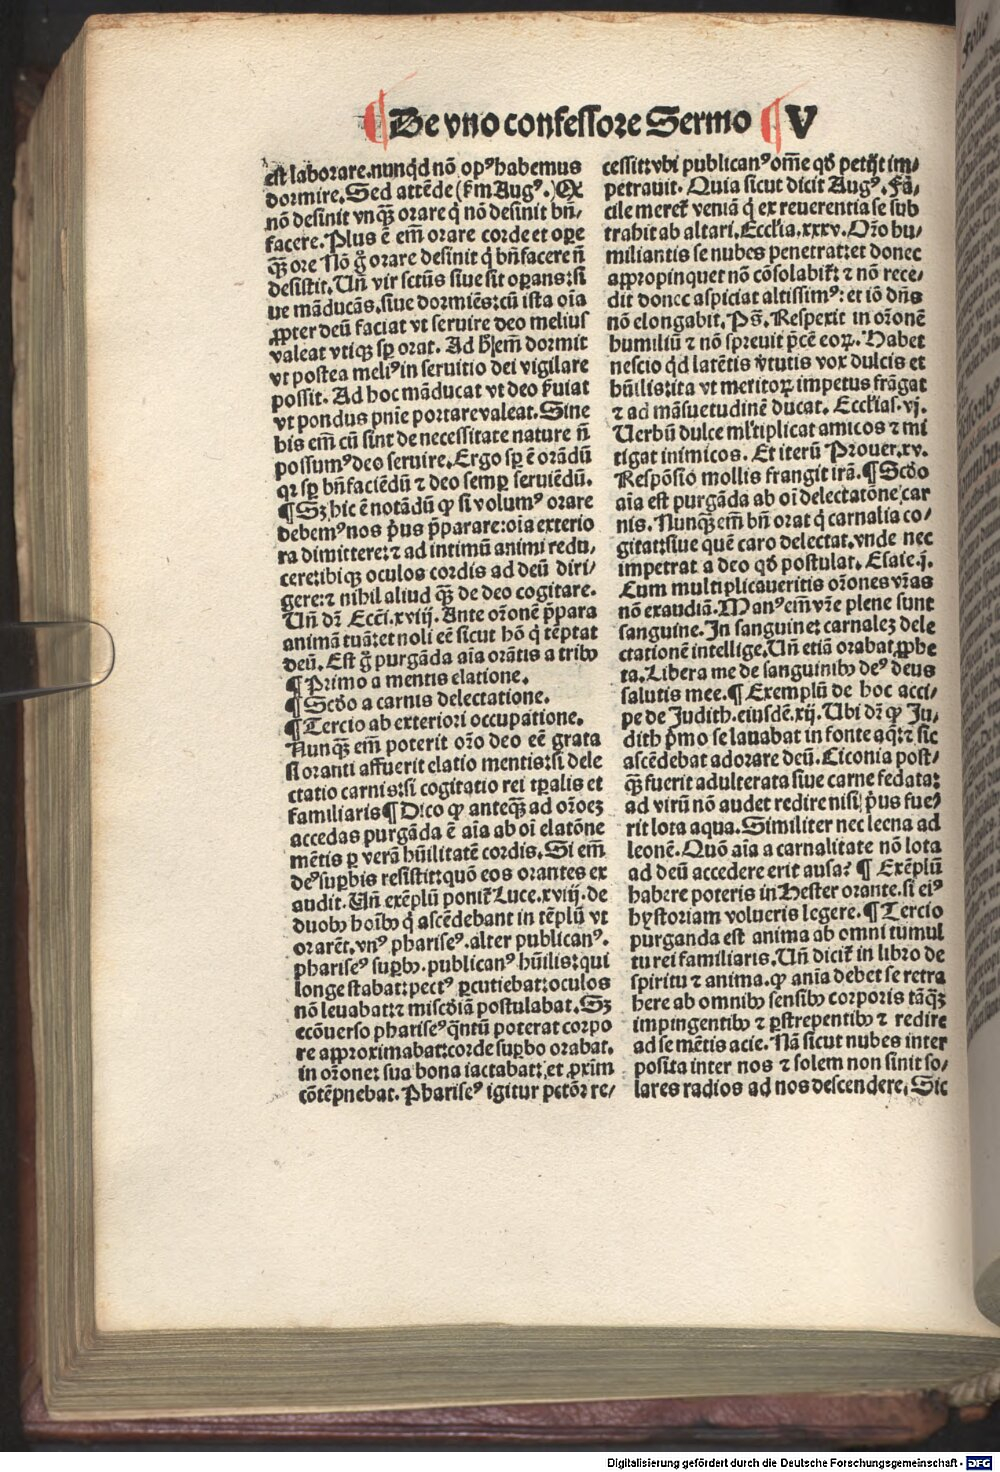 ¶ De vno confessore Sermo ¶ V
est laborare.nunqd nō opꝰ habemus
dormire. Sed attēde (ẜm Augꝰ.) Qꝛ
nō desinit vnqꝫ orare q̇ nō desinit bn̄
facere. Plus ē em̄ orare corde et oꝑe
qꝫ ore Nō g̊ orare desinit q̇ bn̄facere n̄
desistit. Un̄ vir sctūs siue sit oꝑans: si
ue māducās, siue dormiēs: cū ista oīa
ꝓpter deū faciat vt seruire deo melius
valeat vtiqꝫ sꝑ orat. Ad em̄ dormit
vt postea meliꝰ in seruitio dei vigilare
possit. Ad hoc māducat vt deo ẜuiat
vt pondus pnīe portare valeat. Sine
his em̄ cū sint de necessitate nature n̄
possumꝰ deo seruire. Ergo sꝑ ē orādū
qꝛ sꝑ bn̄faciēdū ⁊ deo semꝑ seruiēdū.
¶ Sꝫ hic ē notādū ꝙ si volumꝰ orare
debemꝰ nos p̄us p̄parare: oīa exterio
ra dimittere: ⁊ ad intimū animi redu/
cere: ibiqꝫ oculos cordis ad deū diri/
gere: ⁊ nihil aliud qꝫ de deo cogitare.
Un̄ dr̄ Ecc̄i.xviij. Ante orōnē p̄para
animā tuā: et noli eē sicut hō q̇ tēptat
deū. Est g̊ purgāda aīa orātis a tribꝰ
¶ Primo a mentis elatione.
¶ Scd̄o a carnis delectatione.
¶ Tercio ab exteriori occupatione.
Nunqꝫ em̄ poterit orō deo eē grata
si oranti affuerit elatio mentis: si dele
ctatio carnis: si cogitatio rei tꝑalis et
familiaris ¶ Dico ꝙ anteqꝫ ad orōeꝫ
accedas purgāda ē aīa ab oi elatōne
mētis ꝑ verā hūilitatē cordis. Si em̄
deꝰ suꝑbis resistit: quō eos orantes ex
audit. Un̄ exēplū ponit̄ Luce.xviij. de
duobꝰ hoībꝰ q̇ ascēdebant in tēplū vt
orarēt. vnꝰ phariseꝰ. alter publicanꝰ.
phariseꝰ suꝑbꝰ. publicanꝰ hūilis: qui
longe stabat: pectꝰ ꝑcutiebat: oculos
nō leuabat: ⁊ misc̄diā postulabat. Sꝫ
ecōuerso phariseꝰ q̄ntū poterat corpo
re approximabat: corde suꝑbo orabat.
in orōne: sua bona iactabat: et ꝓxim̄
cōtēpnebat. Phariseꝰ igitur petōꝛ re/
cessit: vbi publicanꝰ om̄e qd̄ petijt im/
petrauit. Quia sicut dicit Augꝰ. Fa/
cile meret̄ veniā q̇ ex reuerentia se sub
trahit ab altari. Eccl̄ia.xxxv. Orō hu/
miliantis se nubes penetrat: et donec
appropinquet nō cōsolabit̄: ⁊ nō rece/
dit donec aspiciat altissimꝰ: et iō dn̄s
nō elongabit. Ps̄. Respexit in orōnē
humiliū ⁊ nō spreuit p̄cē eoꝝ. Habet
nescio qd latētis v̄tutis vox dulcis et
hūilis: ita vt meritoꝝ impetus frāgat
⁊ ad māsuetudinē ducat. Eccl̄ias.vj.
Uerbū dulce ml̄tiplicat amicos ⁊ mi
tigat inimicos. Et iterū Prouer.xv.
Respōsio mollis frangit irā. ¶ Scd̄o
aīa est purgāda ab oi delectatōne car
nis. Nunqꝫ em̄ bn̄ orat q̇ carnalia co/
gitat: siue quē caro delectat. vnde nec
impetrat a deo qd̄ postulat. Esaie.j.
Cum multiplicaueritis orōnes vr̄as
nō exaudiā. Manꝰ em̄ vr̄e plene sunt
sanguine. In sanguine: carnaleꝫ dele
ctationē intellige. Un̄ etiā orabat ꝓphe
ta. Libera me de sanguinibꝰ deꝰ deus
salutis mee. ¶ Exemplū de hoc acci/
pe de Judith. eiusdē.xij. Ubi dr̄ ꝙ Ju/
dith p̄mo se lauabat in fonte aq̄: ⁊ sic
ascēdebat adorare deū. Ciconia post/
qꝫ fuerit adulterata siue carne fedata:
ad virū nō audet redire nisi p̄us fue/
rit lota aqua. Similiter nec leena ad
leonē. Quō aīa a carnalitate nō lota
ad deū accedere erit ausa? ¶ Exēplū
habere poteris in Hester orante. si eiꝰ
hystoriam volueris legere. ¶ Tercio
purganda est anima ab omni tumul
tu rei familiaris. Un̄ dicit̄ in libro de
spiritu ⁊ anima. ꝙ anīa debet se retra
here ab omnibꝰ sensibꝰ corporis tāqꝫ
impingentibꝰ ⁊ ꝑstrepentibꝰ ⁊ redire
ad se mētis acie. Nā sicut nubes inter
posita inter nos ⁊ solem non sinit so/
lares radios ad nos descendere. Sic
Digitalisierung gefördert durch die Deutsche Forschungsgemeinschaft - DFG